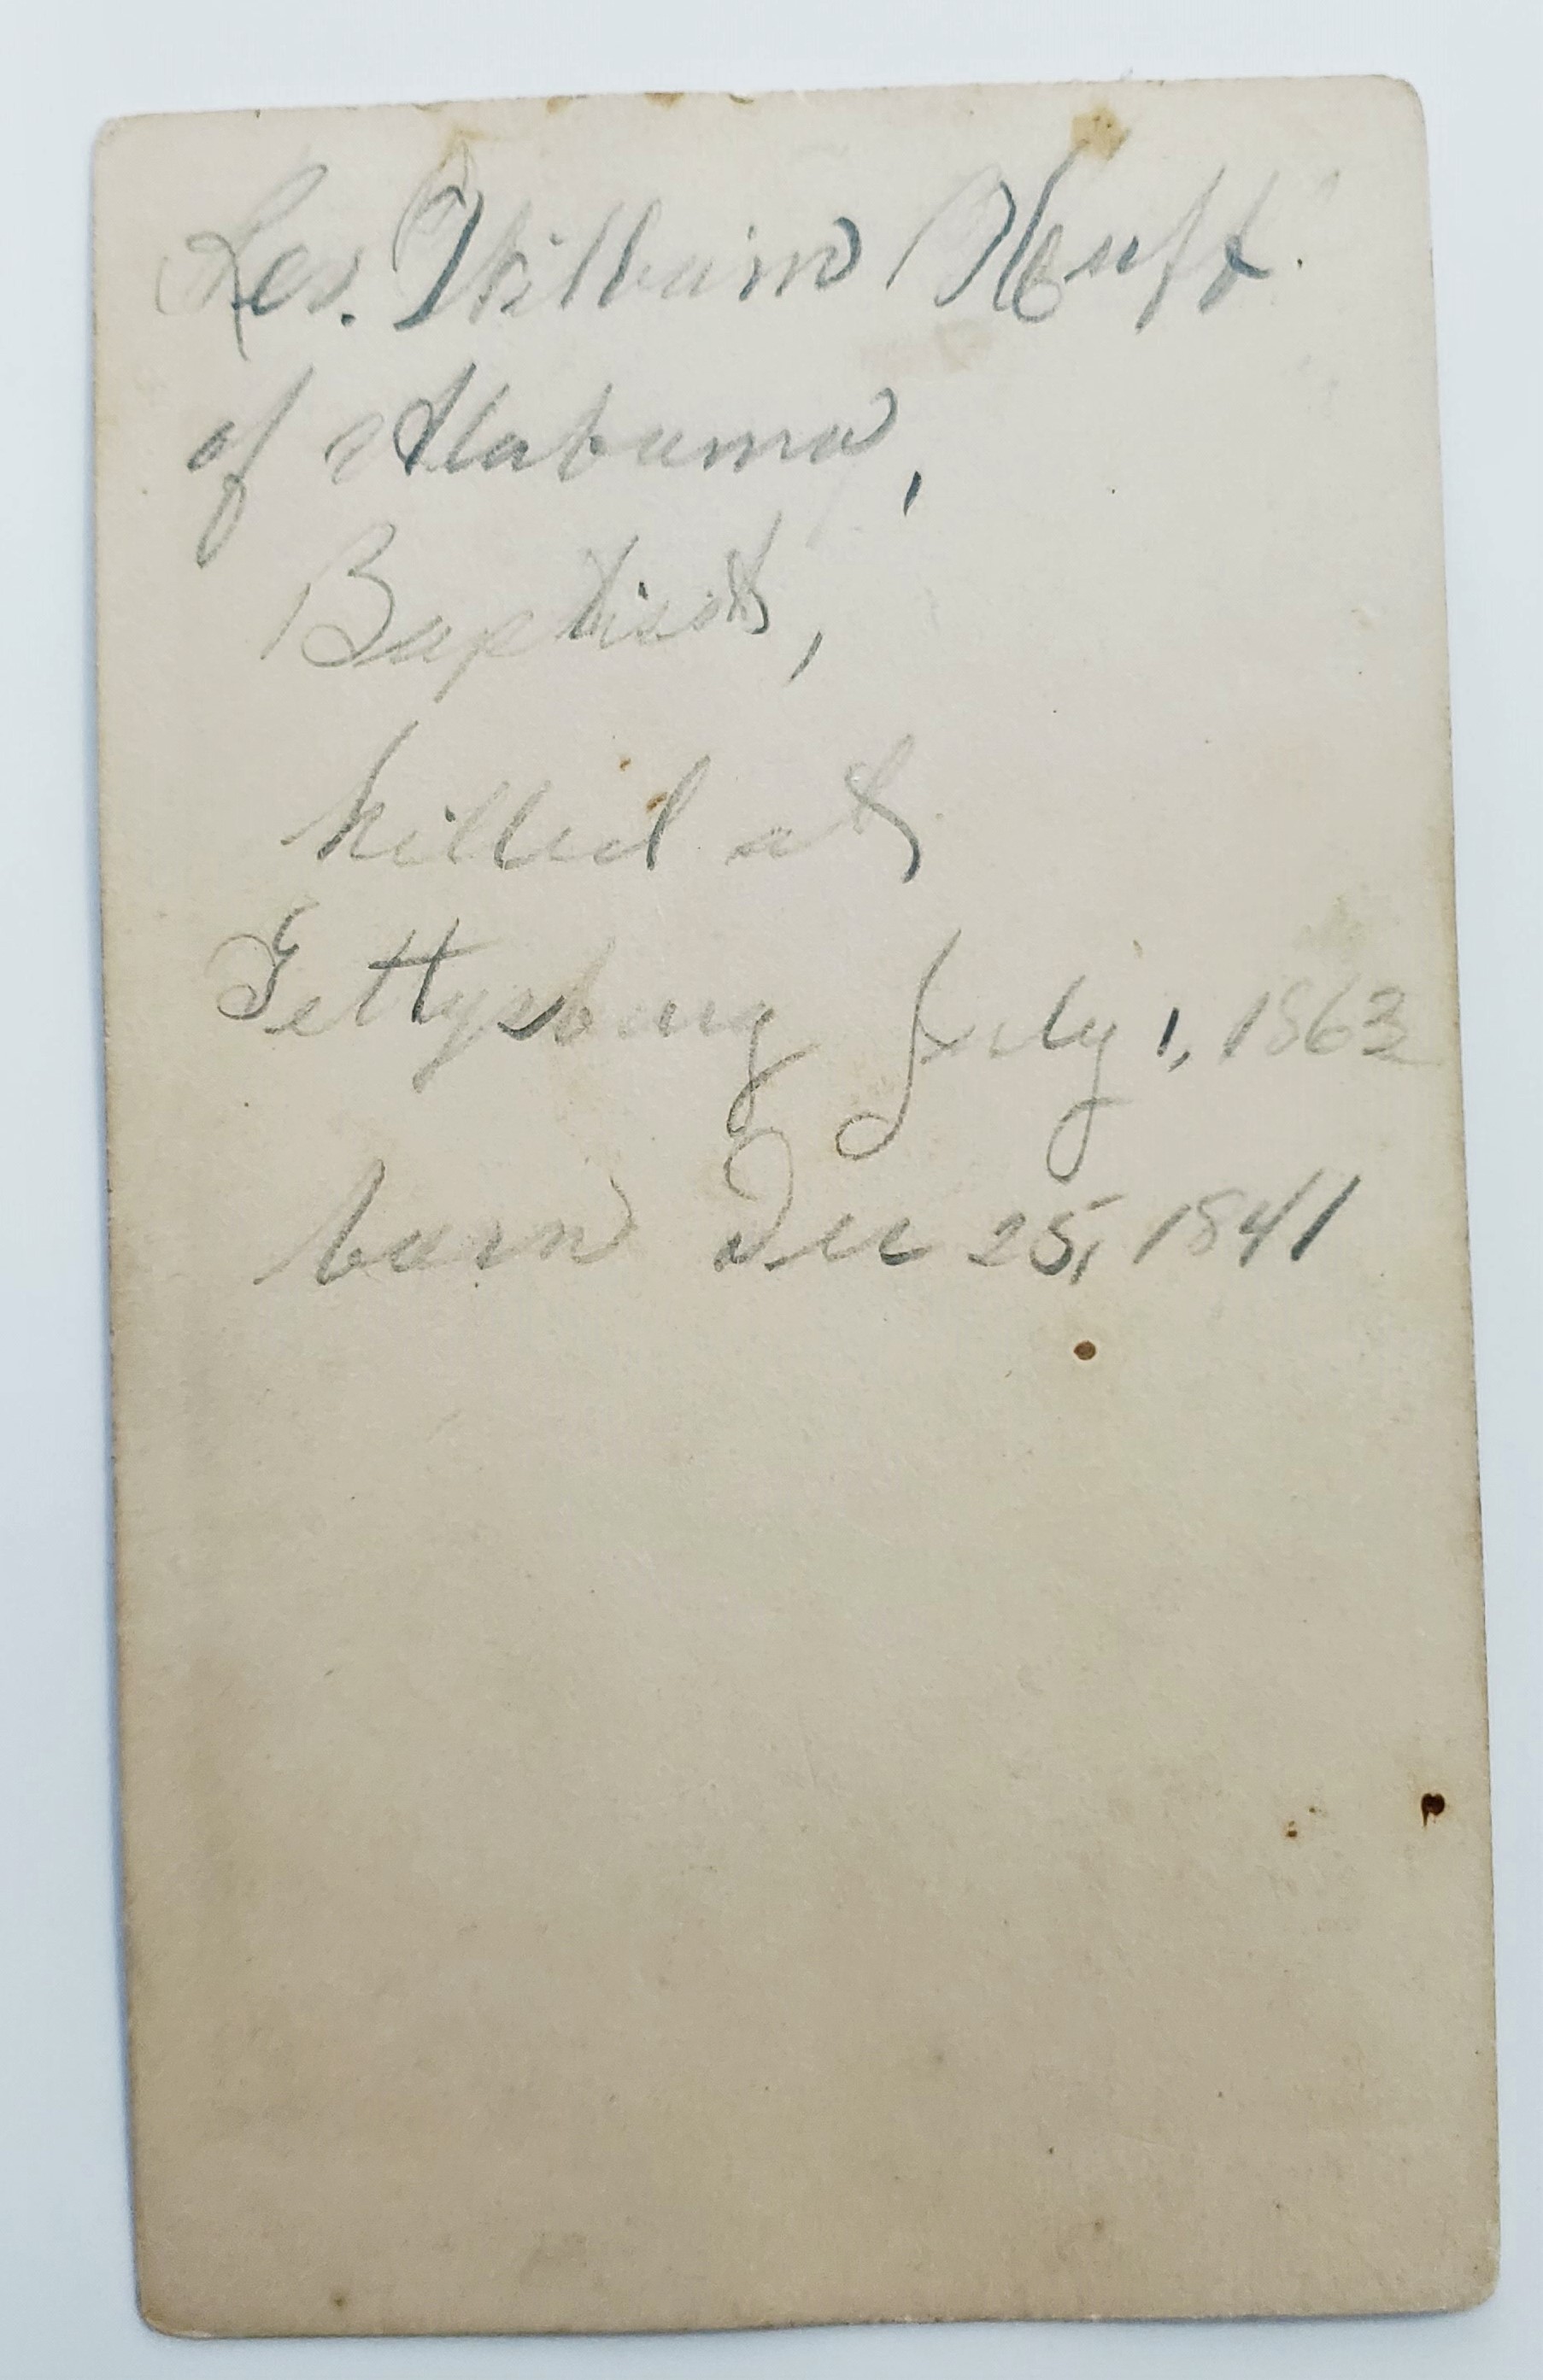 Rev. William Huff.
of Alabama,
Baptist,
killed at
Gettysburg July 1, 1863
born Dec 25, 1841